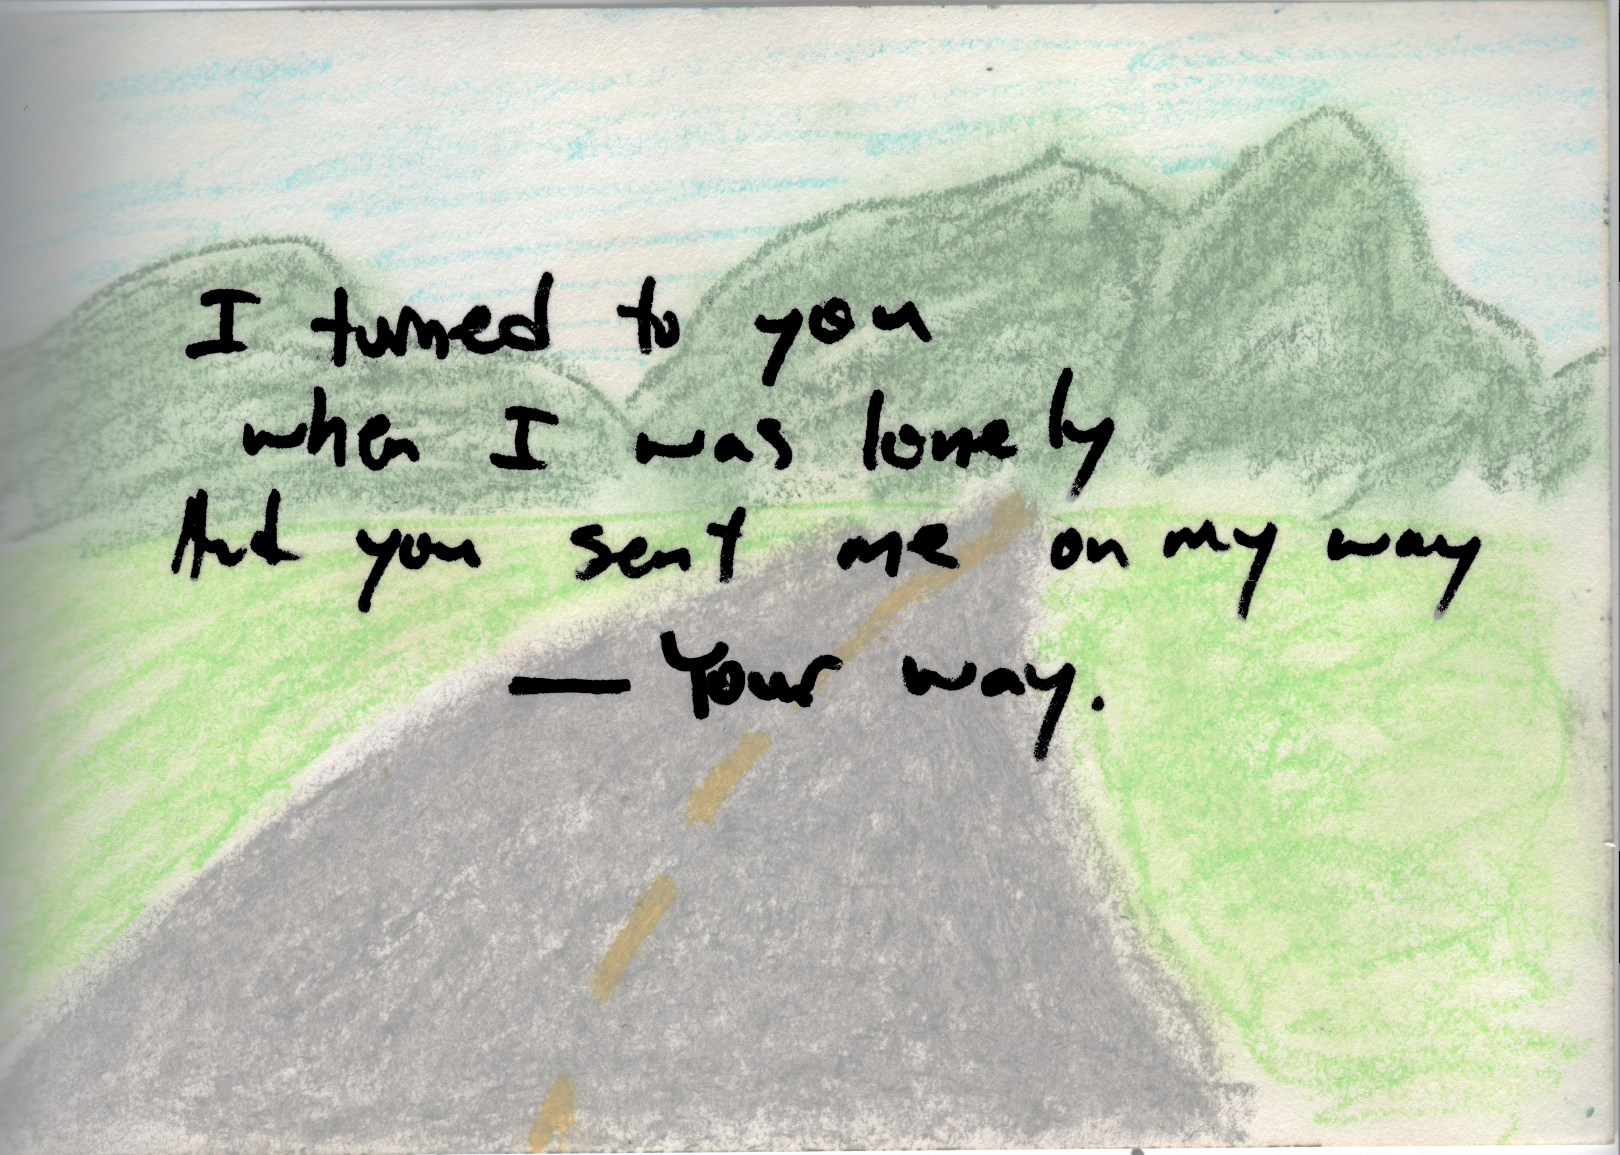 I turned to you
when I was lonely
And you sent me on my way
— Your way.